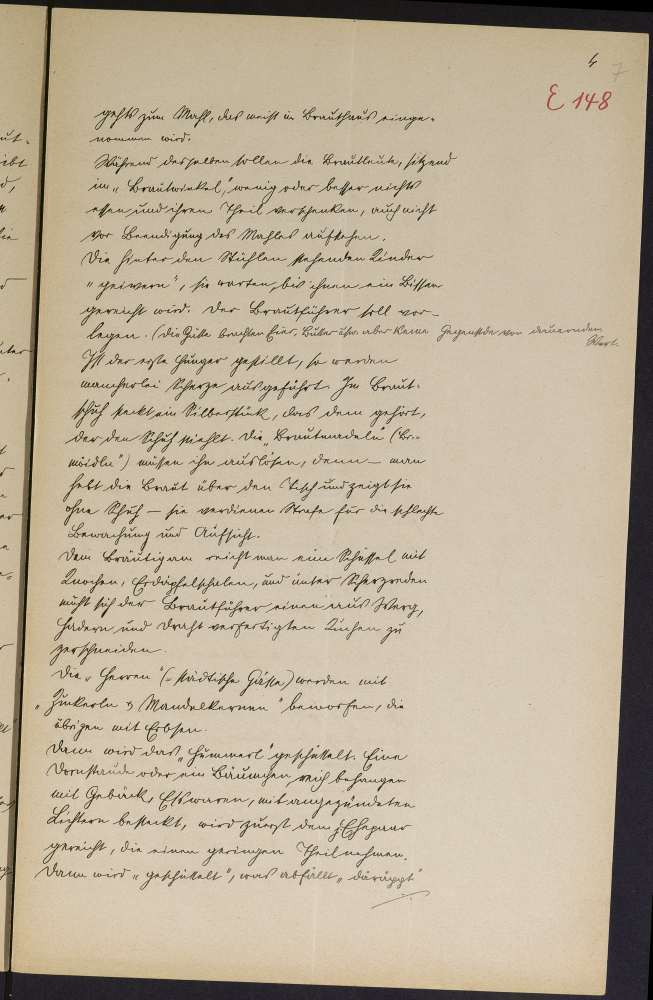 4
7
E 148
gehts zum Mahl, das meist im Brauthaus einge-
nommen wird.
Während desselben sollen die Brautleute, sitzend
im „Brautwinkel", wenig oder besser nichts
essen und ihren Theil verschenken, auch nicht
vor Beendigung des Mahles aufstehen.
Die hinter den Stühlen stehenden Kinder
„geiwern", sie warten, bis ihnen ein Bissen
gereicht wird. Der Brautführer soll vor-
legen. (Die Gäste brachten Eier, Butter usw. aber keine Gegenstde von dauerndem
Wert.
Ist der erste Hunger gestillt, so werden
mancherlei Scherze ausgeführt. Im Braut-
schuh steckt ein Silberstück, das dem gehört,
der den Schuh stiehlt. Die „Brautmadeln" (Br.-
moidln") müssen ihn auslösen, denn — man
hebt die Braut über den Tisch und zeigt sie
ohne Schuh — sie verdienen Strafe für die schlechte
Bewachung und Aufsicht.
Dem Bräutigam reicht man eine Schüssel mit
Knochen, Erdäpfelschalen, und unter Scherzreden
müht sich der Brautführer einen aus Werg,
Hadern und Draht verfertigten Kuchen zu
zerschneiden.
Die „Herren" (= städtische Gäste) werden mit
„Zuckerln u Mandelkernen" beworfen, die
übrigen mit Erbsen.
Dann wird das „Hummerl" geschüttelt. Eine
Dornstaude oder ein Bäumchen reich behangen
mit Gebäck, Esswaren, mit angezündeten
Lichtern besteckt, wird zuerst dem Ehepaar
gereicht, die einen geringen Theil nehmen.
Dann wird „geschüttelt", was abfällt „